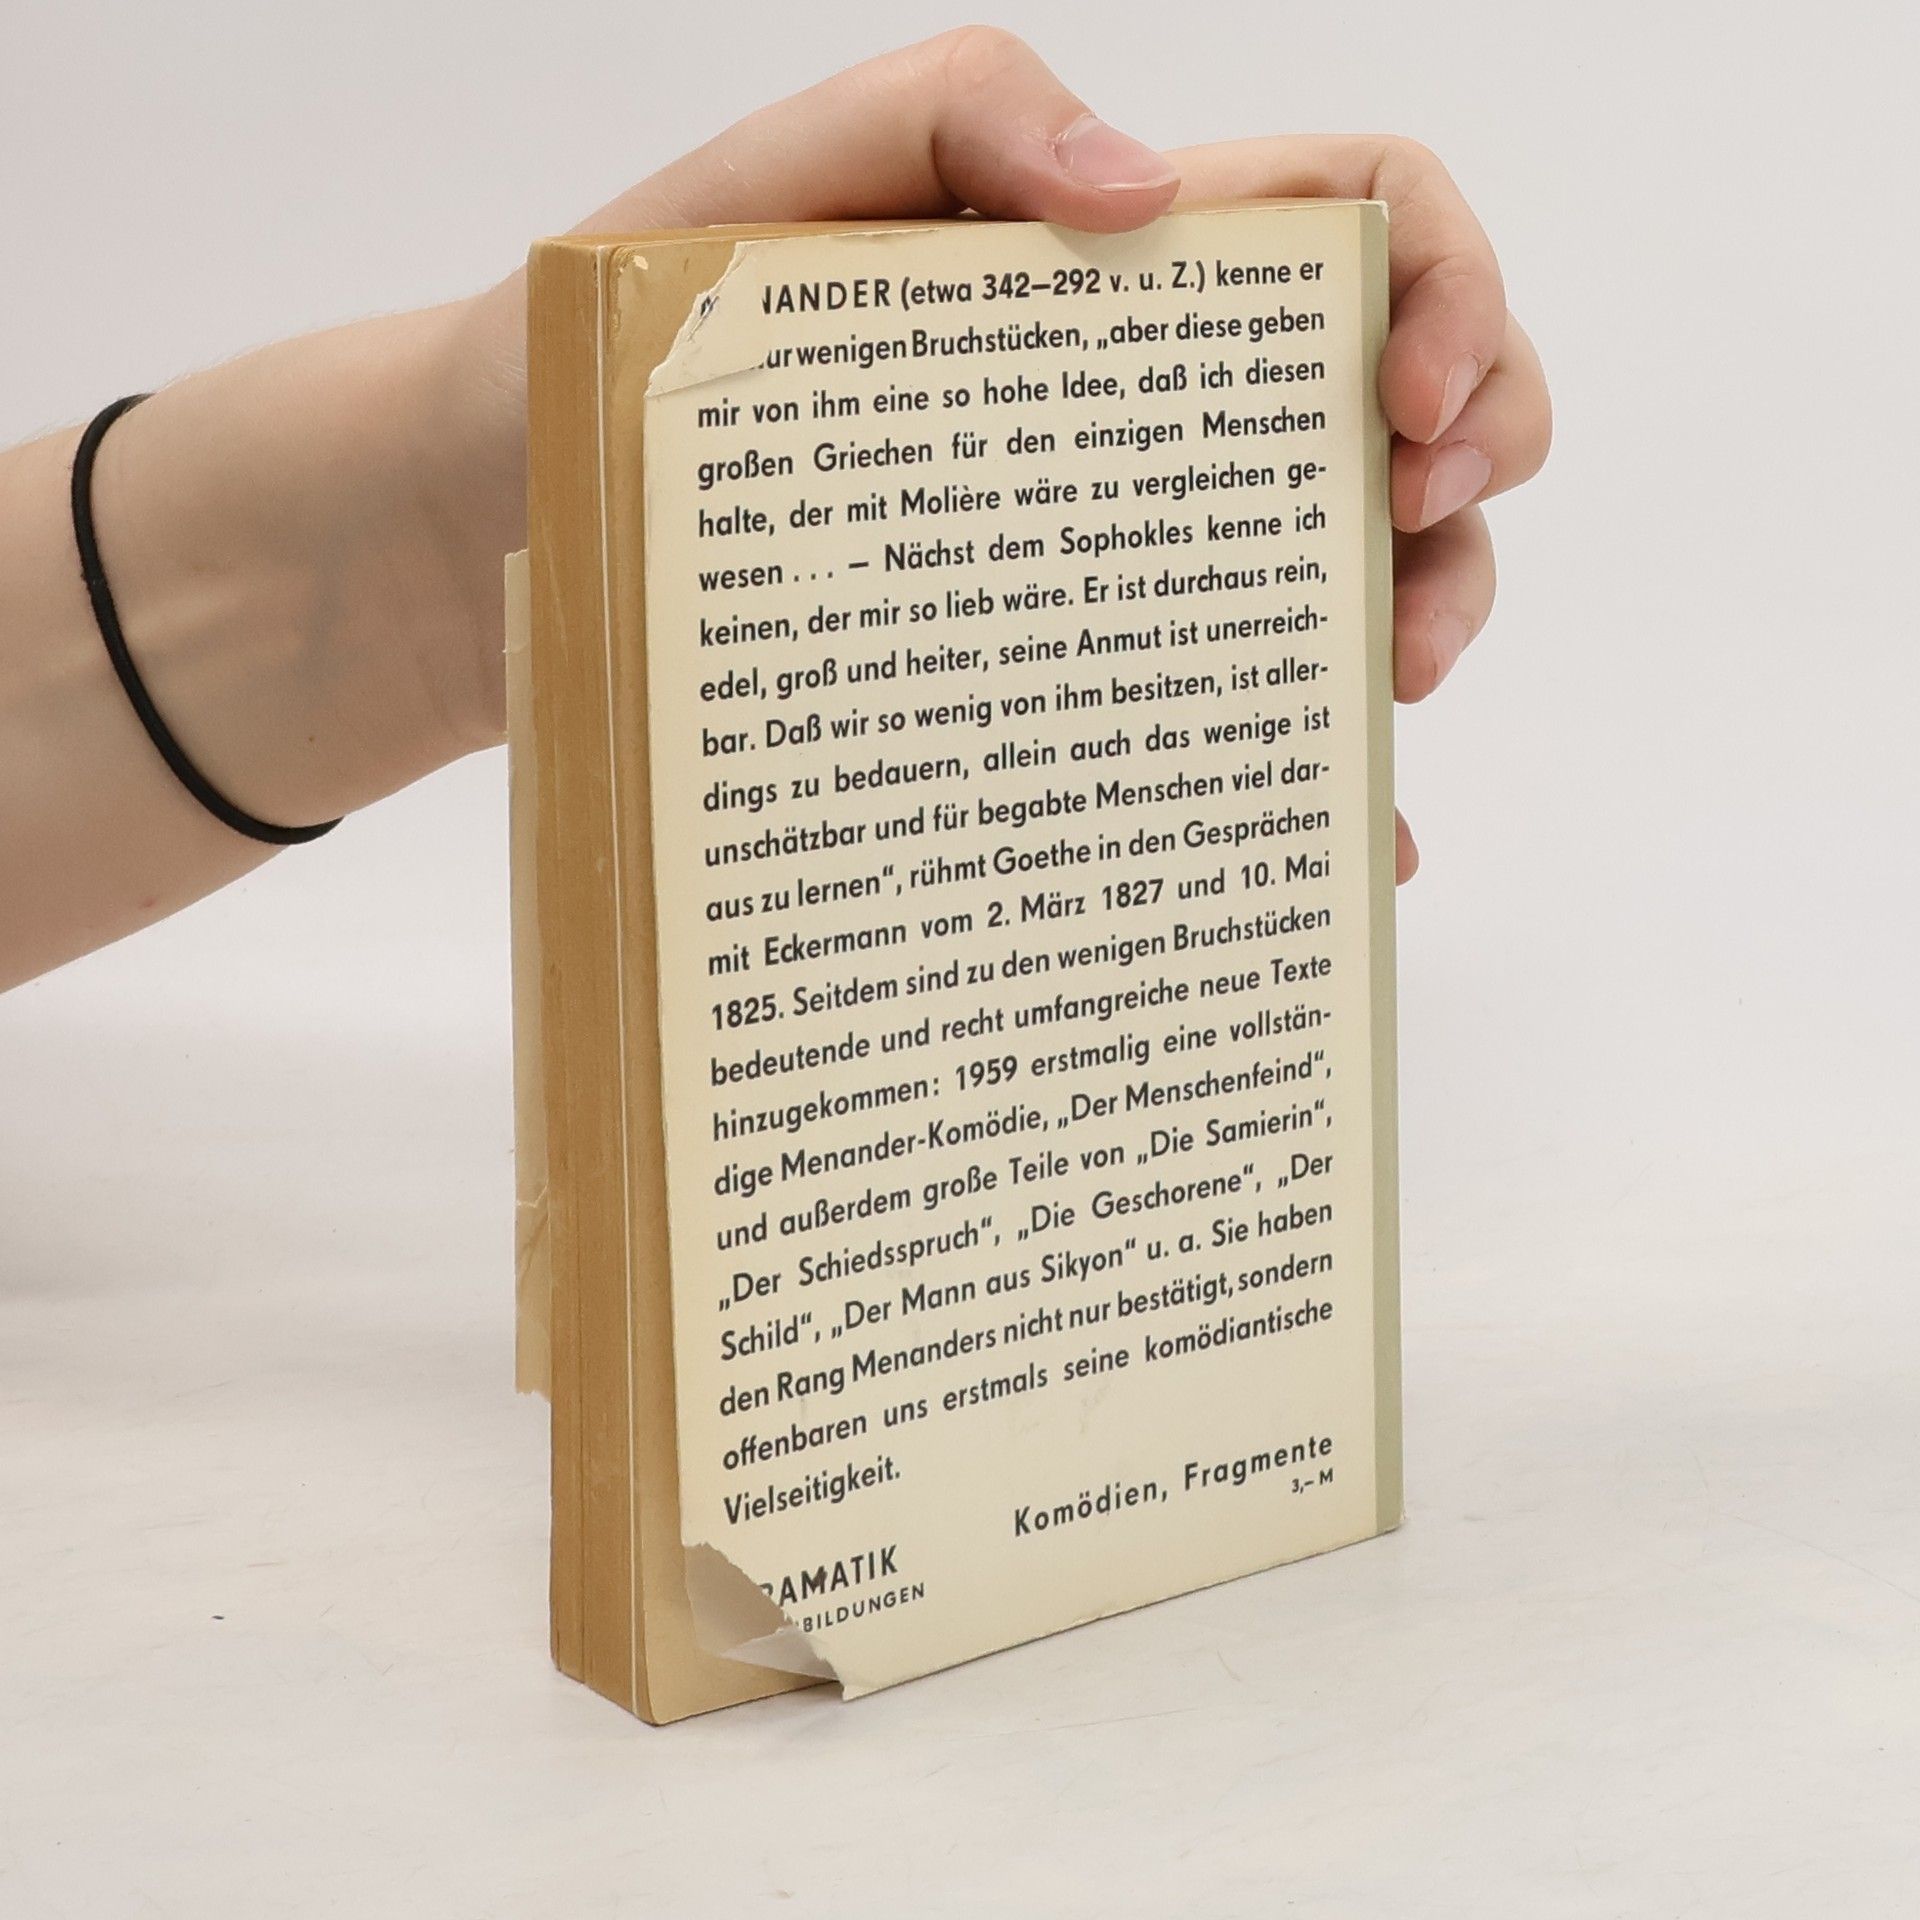 NANDER (etwa 342–292 v. u. Z.) kenne er
ur wenigen Bruchstücken, „aber diese geben
mir von ihm eine so hohe Idee, daß ich diesen
großen Griechen für den einzigen Menschen
halte, der mit Molière wäre zu vergleichen ge-
wesen . . . – Nächst dem Sophokles kenne ich
keinen, der mir so lieb wäre. Er ist durchaus rein,
edel, groß und heiter, seine Anmut ist unerreich-
bar. Daß wir so wenig von ihm besitzen, ist aller-
dings zu bedauern, allein auch das wenige ist
unschätzbar und für begabte Menschen viel dar-
aus zu lernen“, rühmt Goethe in den Gesprächen
mit Eckermann vom 2. März 1827 und 10. Mai
1825. Seitdem sind zu den wenigen Bruchstücken
bedeutende und recht umfangreiche neue Texte
hinzugekommen: 1959 erstmalig eine vollstän-
dige Menander-Komödie, „Der Menschenfeind“,
und außerdem große Teile von „Die Samierin“,
„Der Schiedsspruch“, „Die Geschorene“, „Der
Schild“, „Der Mann aus Sikyon“ u. a. Sie haben
den Rang Menanders nicht nur bestätigt, sondern
offenbaren uns erstmals seine komödiantische
Vielseitigkeit.
Komödien, Fragmente
3,– M
RAMATIK
BILDUNGEN